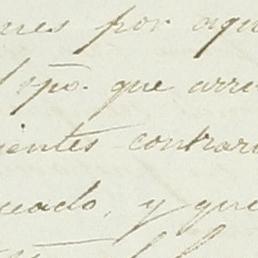 nes por aqu
l tpō. que arri
ientes contrari
cado, y que